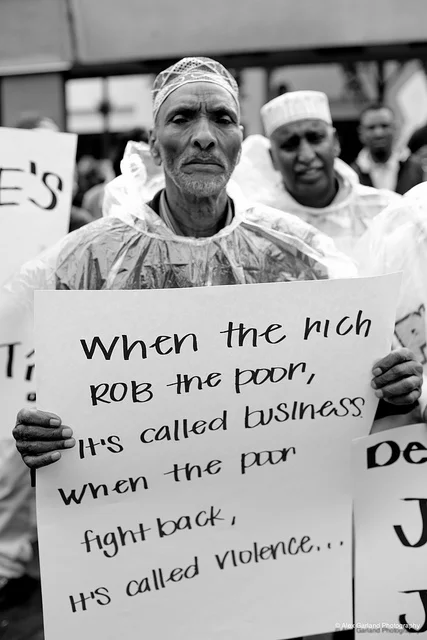 E'S
When the rich
ROB the poor,
it's called business
when the poor
fight back,
it's called violence...
De
J
J
© Alex Garland Photography